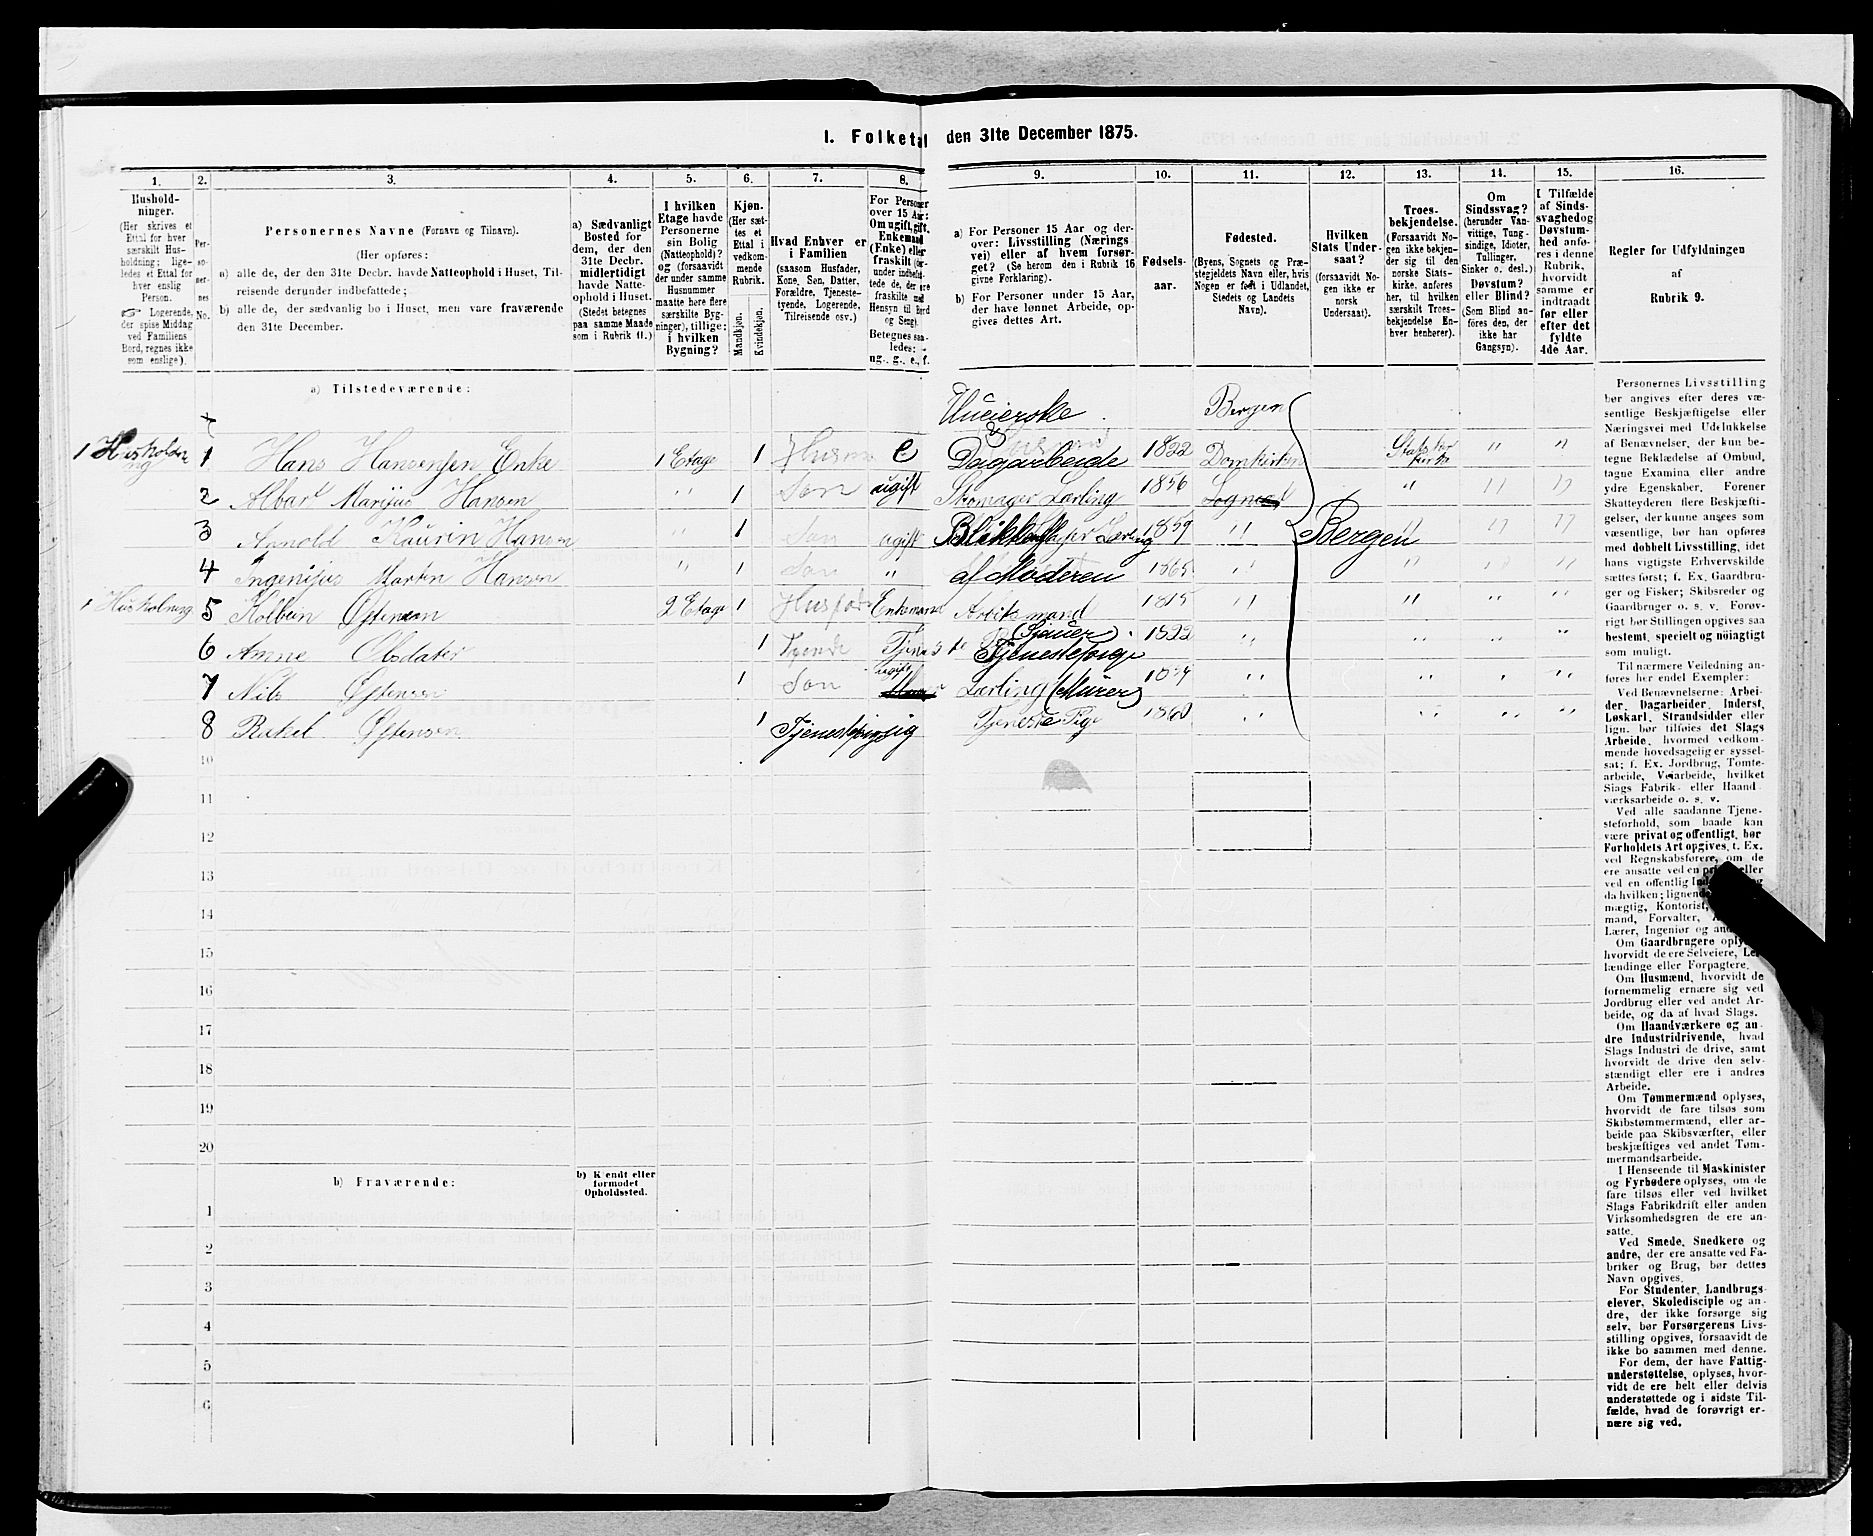 1. Folketal den 31te December 1875.
1.
Hushold-
ninger.
(Her skrives et
Ettal for hver
særskilt Hus-
holdning; lige-
ledes et Ettal for
hver enslig
Person.
Logerende,
der spise Middag
ved Familiens
Bord, regnes ikke
som enslige).
2.
Per-
so-
ner-
nes
No.
3.
Personernes Navne (Fornavn og Tilnavn).
(Her opføres:
a) alle de, der den 31te Decbr. havde Natteophold i Huset, Til-
reisende derunder indbefattede;
b) alle de, der sædvanlig bo i Huset, men vare fraværende
den 31te December.
4.
a) Sædvanligt
Bosted for
dem, der den
31te Decbr.
midlertidigt
havde Natte-
ophold i Huset.
(Stedet betegnes
paa samme Maade
som i Rubrik 11.)
5.
I hvilken
Etage havde
Personerne
sin Bolig
(Natteophold)?
og (forsaavidt
der under samme
Husnummer
maatte høre flere
særskilte Byg-
ninger), tillige:
i hvilken
Bygning?
6.
Kjøn.
(Her sæt-
tes et
Ettal i
vedkom-
mende
Rubrik.
Mandkjøn.
Kvindekjøn.
7.
Hvad Enhver er
i Familien
(saasom Husfader,
Kone, Søn, Datter,
Forældre, Tjeneste-
tyende, Logerende,
Tilreisende osv.)
8.
For Personer
over 15 Aar:
Om ugift, gift,
Enkemand
(Enke) eller
fraskilt
9.
a) For Personer 15 Aar og der-
over: Livsstilling (Nærings-
vei) eller af hvem forsør-
get? (Se herom den i Rubrik 16
givne Forklaring).
b) For Personer under 15 Aar,
der have lønnet Arbeide, op-
gives dettes Art.
10.
Fødsels-
aar.
11.
Fødested.
(Byens, Sognets og Præ-
stegjeldets Navn eller, hvis
Nogen er født i Udlandet,
Stedets og Landets
Navn).
12.
Hvilken
Stats Under-
saat?
(forsaavidt No-
gen ikke er
norsk
Undersaat).
13.
Troes-
bekjendelse.
(Forsaavidt No-
gen ikke bekjen-
der sig til den
norske Stats-
kirke, anføres
her, til hvilken
særskilt Troes-
bekjendelse En-
hver henhører).
14.
Om
Sindssvag?
(herunder Van-
vittige, Tung-
sindige, Idioter,
Tullinger,
Sinker o. desl.)
Døvstum?
eller Blind?
(Som Blind an-
føres den, der
ikke har
Gangsyn).
15.
I Tilfælde
af Sinds-
svaghed og
Døvstum-
hed anfø-
res i denne
Rubrik,
hvorvidt
samme er
indtraadt
før eller
efter det
fyldte
4de Aar.
16.
Regler for Udfyldningen
af
Rubrik 9.
a) Tilstedeværende:
Bergen
1 1 Hans Hansensen Enke 1 Etage 1 e Dagarbeide 1822 Domkirken " "
2 Albart Marijus Hansen " 1 Søn ugift Skomager Lærling 1856 " " "
3 Arnold Kaurin Hansen " 1 Søn ugift Lærling 1859 " Bergen " " "
4 Martin Hansen " 1 Søn " af Moderen 1865 " " " "
1 5 Østensen 2 Etage 1 Enkemand 1815 " " " "
(Sjauer)
6 Anne Olsdater 1 Tyende Tjeneste 1822 " " " "
ugift
7 Nils Østensen 1 Søn Lærling (Murer) " " " "
8 Rakel Østensen 1 Tjeneste Pige 1860 " " " "
10
11
12
13
14
15
16
17
18
19
20
b) Fraværende:
b) Kjendt eller
formodet
Opholdssted.
1
2
3
4
5
6
Personernes Livsstilling
bør angives efter deres væ-
sentlige Beskjæftigelse eller
Næringsvei med Udelukkelse
af Benævnelser, der kun be-
tegne Beklædelse af Ombud,
tagne Examina eller andre
ydre Egenskaber. Forener
Skatteyderen flere Beskjæfti-
gelser, der kunne ansees som
væsentlige, bør han opføres
med dobbelt Livsstilling, idet
hans vigtigste Erhvervskilde
sættes først; f. Ex. Gaardbru-
ger og Fisker; Skibsreder og
Gaardbruger o. s. v. Forøv-
rigt bør Stillingen opgives saa
bestemt, specielt og nøiagtigt
som muligt.
Til nærmere Veiledning an-
føres her endel Exempler:
Ved Benævnelserne: Arbei-
der, Dagarbeider, Inderst,
Løskarl, Strandsidder eller
lign. bør tilføies det Slags
Arbeide, hvormed vedkom-
mende hovedsagelig er syssel-
sat; f. Ex. Jordbrug, Tomte-
arbeide, Veiarbeide, hvilket
Slags Fabrik- eller Haand-
værksarbeide o. s. v.
Ved alle saadanne Tjene-
steforhold, som baade kan
være privat og offentligt, bør
Forholdets Art opgives, t. Ex.
ved Regnskabsførere, om de
ere ansatte ved en
ved en offentlig
da hvilken;
mægtig, Kontorist,
mand, Forvalter,
Lærer, Ingeniør og
Om Gaardbrugere
hvorvidt de ere Selveiere,
lændinge eller Forpagtere.
Om Husmænd, hvorvidt de
fornemmelig ernære sig ved
Jordbrug eller ved andet Ar-
beide, og da af hvad Slags.
Om Haandværkere og an-
dre Industridrivende, hvad
Slags Industri de drive, samt
hvorvidt de drive den selv-
stændigt eller ere i andres
Arbeide.
Om Tømmermænd oplyses,
hvorvidt de fare tilsøs som
Skibstømmermænd, eller ar-
beide paa Skibsværfter, eller
beskjæftiges ved andet Tøm-
mermandsarbeide.
I Henseende til Maskinister
og Fyrbødere oplyses, om de
fare tilsøs eller ved hvilket
Slags Fabrikdrift eller anden
Virksomhedsgren de ere an-
satte.
Ved Smede, Snedkere og
andre, der ere ansatte ved Fa-
briker og Brug, bør dettes
Navn opgives.
For Studenter, Landbrugs-
elever, Skoledisciple og an-
dre, der ikke forsørge sig
selv, bør Forsørgerens Livs-
stilling opgives, forsaavidt de
ikke bo sammen med denne.
For dem, der have Fattig-
understøttelse, oplyses, hvor-
vidt de ere helt eller delvis
understøttede og i sidste Til-
fælde, hvad de forøvrigt er-
nære sig ved.